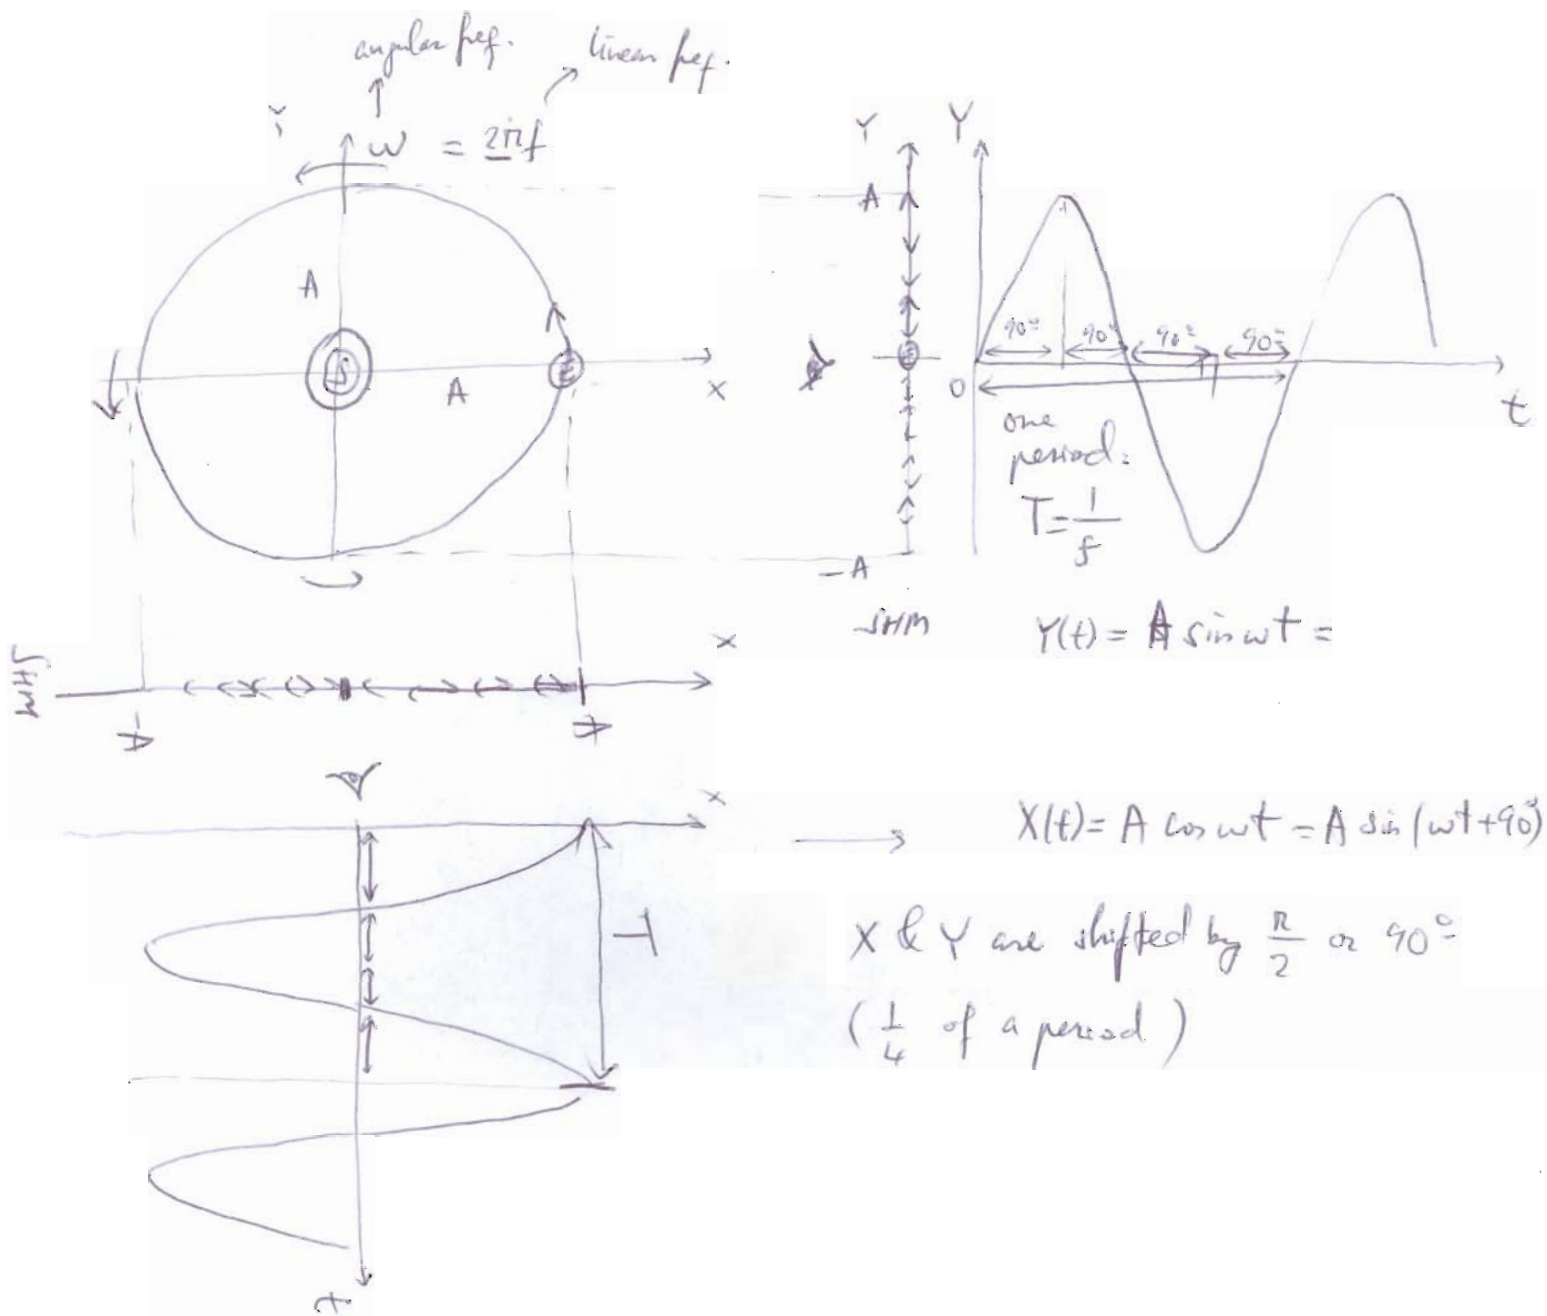 angular freq.
linear freq.
Y
ω = 2πf
A
S
A
E
X
Y
A
-A
SHM
Y
90° 90° 90° 90°
0
t
one
period:
T = 1/f
Y(t) = A sin ωt =
SHM
-A
A
X
X
T
t
X(t) = A cos ωt = A sin (ωt + 90°)
X & Y are shifted by π/2 or 90°
(1/4 of a period)